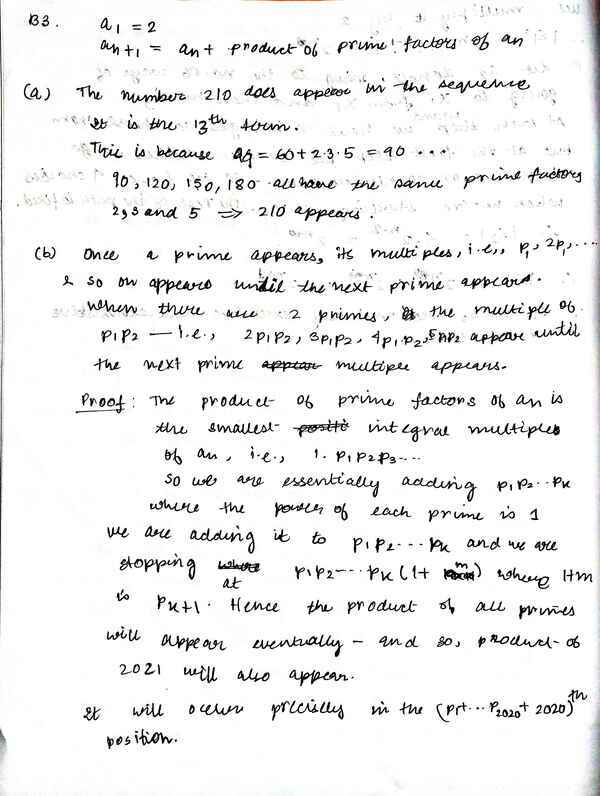 B3. a1 = 2
an+1 = an + product of prime factors of an
(a) The number 210 does appear in the sequence
It is the 13th term.
This is because a9 = 60 + 2·3·5 = 90 ....
90, 120, 150, 180 all have the same prime factors
2, 3 and 5 ⇒ 210 appears.
(b) Once a prime appears, its multiples, i.e., p1, 2p1, ....
& so on appears until the next prime appears.
When there are 2 primes, the multiple of
p1p2 — i.e., 2p1p2, 3p1p2, 4p1p2, 5p1p2 appear until
the next prime appear multiple appears.
Proof: The product of prime factors of an is
the smallest positi integral multiples
of an, i.e., 1. p1p2p3...
So we are essentially adding p1p2...pk
where the power of each prime is 1
We are adding it to p1p2....pk and we are
stopping at p1p2....pk (1+ m) where 1+m
is pk+1. Hence the product of all primes
will appear eventually - and so, product of
2021 will also appear.
It will occur precisely in the (p1+...p2020 + 2020)th
position.